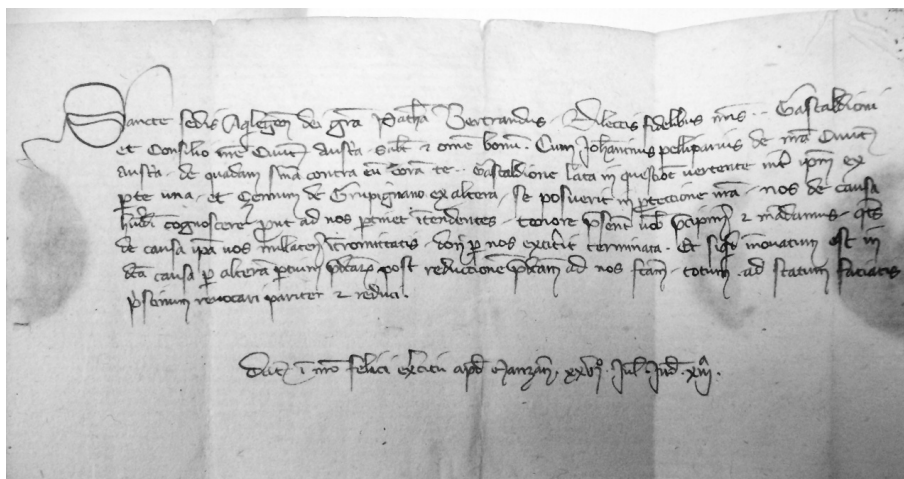 Sancte sedis Aqlegen dei gra Patha Bertrandus. Dilectis fidelibus nris .. Gastaldioni
et Consilio nre Civit Austa. Salt & omne bonum. Cum Johannus pelliparius de nra Civit
Austa. de quadam snia contra eu cora te .. Gastaldione lata in questioe vertente int ipm ex
pte una. et Cennum de Grupignano ex altera, se posuerit in ptectione nra. nos de causa
huidi cognoscere put ad nos ptinet itendentes. tenore psent vob pcipim & mandamus. qts
de causa ipa vos nullaten itromittatis. don p nos exitit terminata. Et siqd inovatum est in
dta causa p altera ptium pdcar post reductione pdcam ad nos fcam. totum ad statum faciatis
pstinum revocari pariter & reduci.
Dat i nro felici exercitu apd Manzan. xxvij. Jul. Ind. xiij.